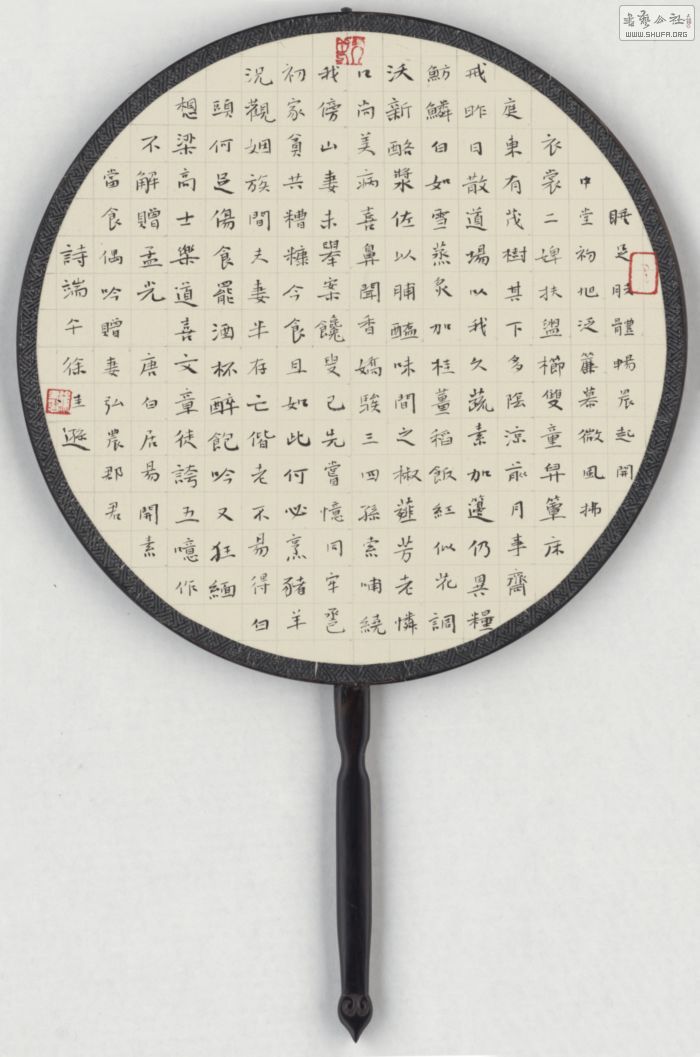 睡足肢體暢晨起開
中堂初旭泛簾幕微風拂
衣裳二婢扶盥櫛雙童舁簟床
庭東有茂樹其下多陰涼前月事齋
戒昨日散道場以我久蔬素加籩仍異糧
魴鱗白如雪蒸炙加桂薑稻飯紅似花調
沃新酪漿佐以脯醢味間之椒薤芳老憐
口尚美病喜鼻聞香嬌騃三四孫索哺繞
我傍山妻未舉案饞叟已先嘗憶同牢巹
初家貧共糟糠今食且如此何必烹豬羊
況觀姻族間夫妻半存亡偕老不易得白
頭何足傷食罷酒杯醉飽吟又狂緬
想梁高士樂道喜文章徒誇五噫作
不解贈孟光 唐白居易開素
當食偶吟贈妻弘農郡君
詩端午徐
書藝公社
WWW.SHUFA.ORG